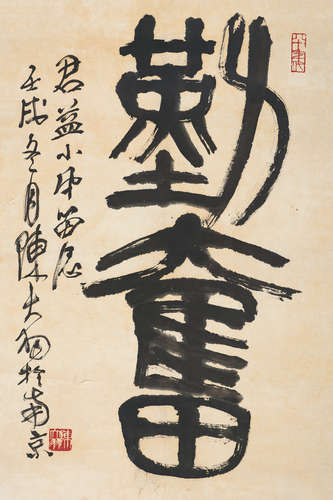 勤奮
君益小冲留念
壬戌冬月陳大羽於南京